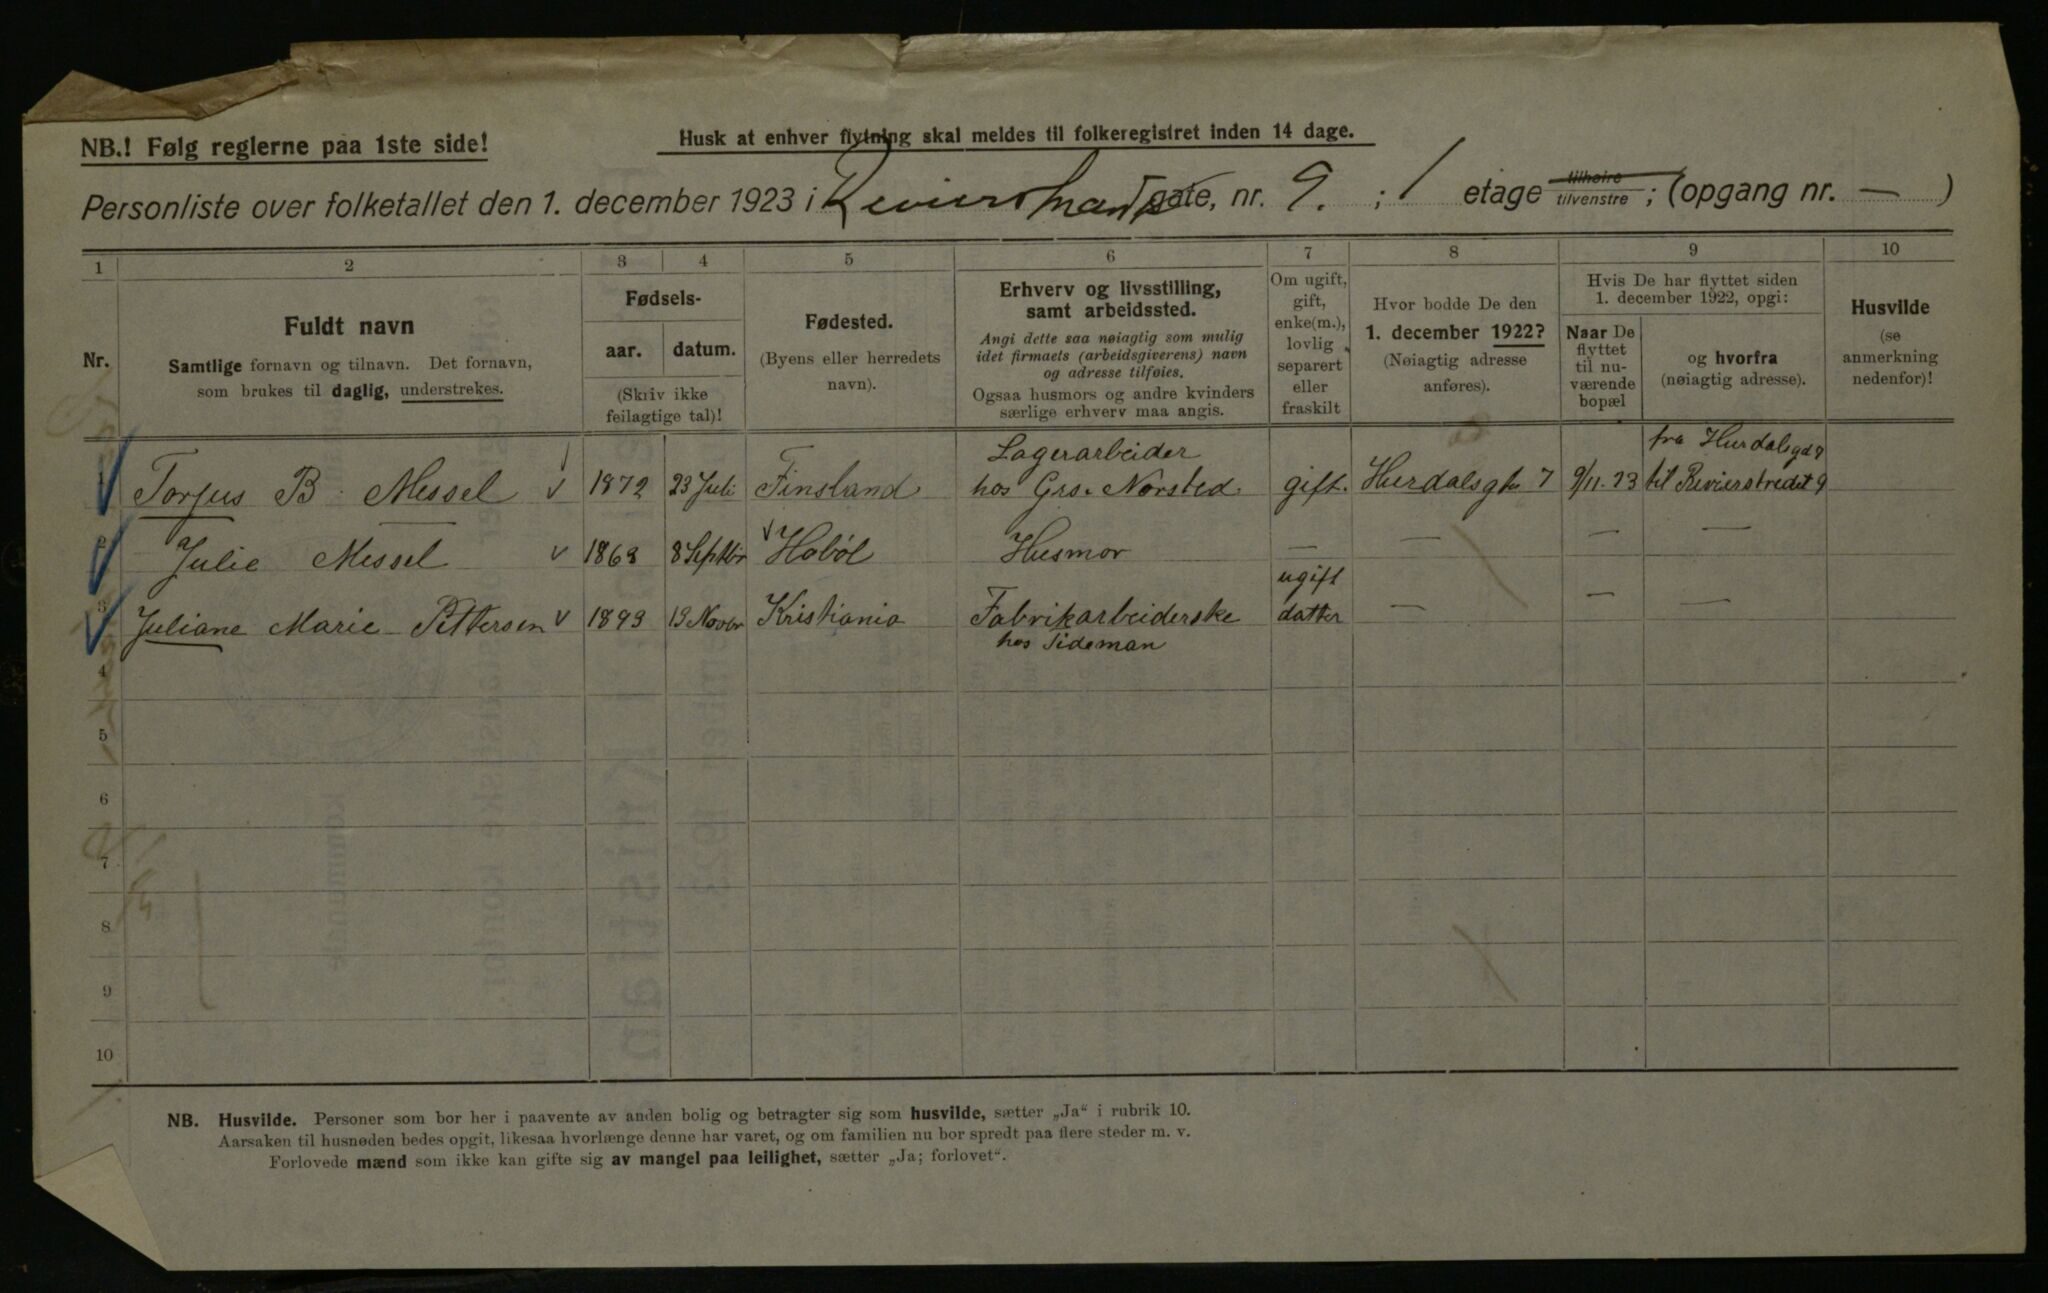 NB.! Følg reglerne paa 1ste side!
Husk at enhver flytning skal meldes til folkeregistret inden 14 dage.
Personliste over folketallet den 1. december 1923 i gate, nr. 9. ; 1 etage tilhøire tilvenstre ; (opgang nr. — )
1 2 3 4 5 6 7 8 9 10
Nr.
Fuldt navn
Samtlige fornavn og tilnavn. Det fornavn,
som brukes til daglig, understrekes.
Fødsels-
aar. datum.
(Skriv ikke
feilagtige tal)!
Fødested.
(Byens eller herredets
navn).
Erhverv og livsstilling,
samt arbeidssted.
Angi dette saa nøiagtig som mulig
idet firmaets (arbeidsgiverens) navn
og adresse tilføies.
Ogsaa husmors og andre kvinders
særlige erhverv maa angis.
Om ugift,
gift,
enke(m.),
lovlig
separert
eller
fraskilt
Hvor bodde De den
1. december 1922?
(Nøiagtig adresse
anføres).
Hvis De har flyttet siden
1. december 1922, opgi:
Naar De
flyttet
til nu-
værende
bopæl
og hvorfra
(nøiagtig adresse).
Husvilde
(se
anmerkning
nedenfor)!
1 Torjus B. Messel 1872 23 Juli Finsland Lagerarbeider
hos Grs. Norsted gift. Hurdalsgt 7 9/11. 23 fra Hurdalsgd 7
til Revierstredet 9
2 Julie Messel 1863 8 Septbr Hobøl Husmor — — — —
3 Juliane Marie Pettersen 1893 13 Novbr Kristiania Fabrikarbeiderske
hos Tideman ugift
datter — — —
4
5
6
7
8
9
10
NB. Husvilde. Personer som bor her i paavente av anden bolig og betragter sig som husvilde, sætter „Ja“ i rubrik 10.
Aarsaken til husnøden bedes opgit, likesaa hvorlænge denne har varet, og om familien nu bor spredt paa flere steder m. v.
Forlovede mænd som ikke kan gifte sig av mangel paa leilighet, sætter „Ja; forlovet“.